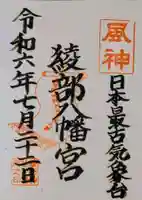 風神
日本最古気象台
綾部八幡宮
令和六年七月二十二日